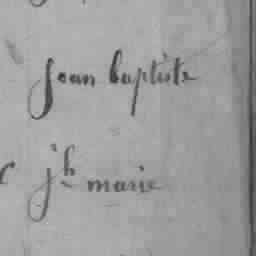 jean baptiste
jh marie